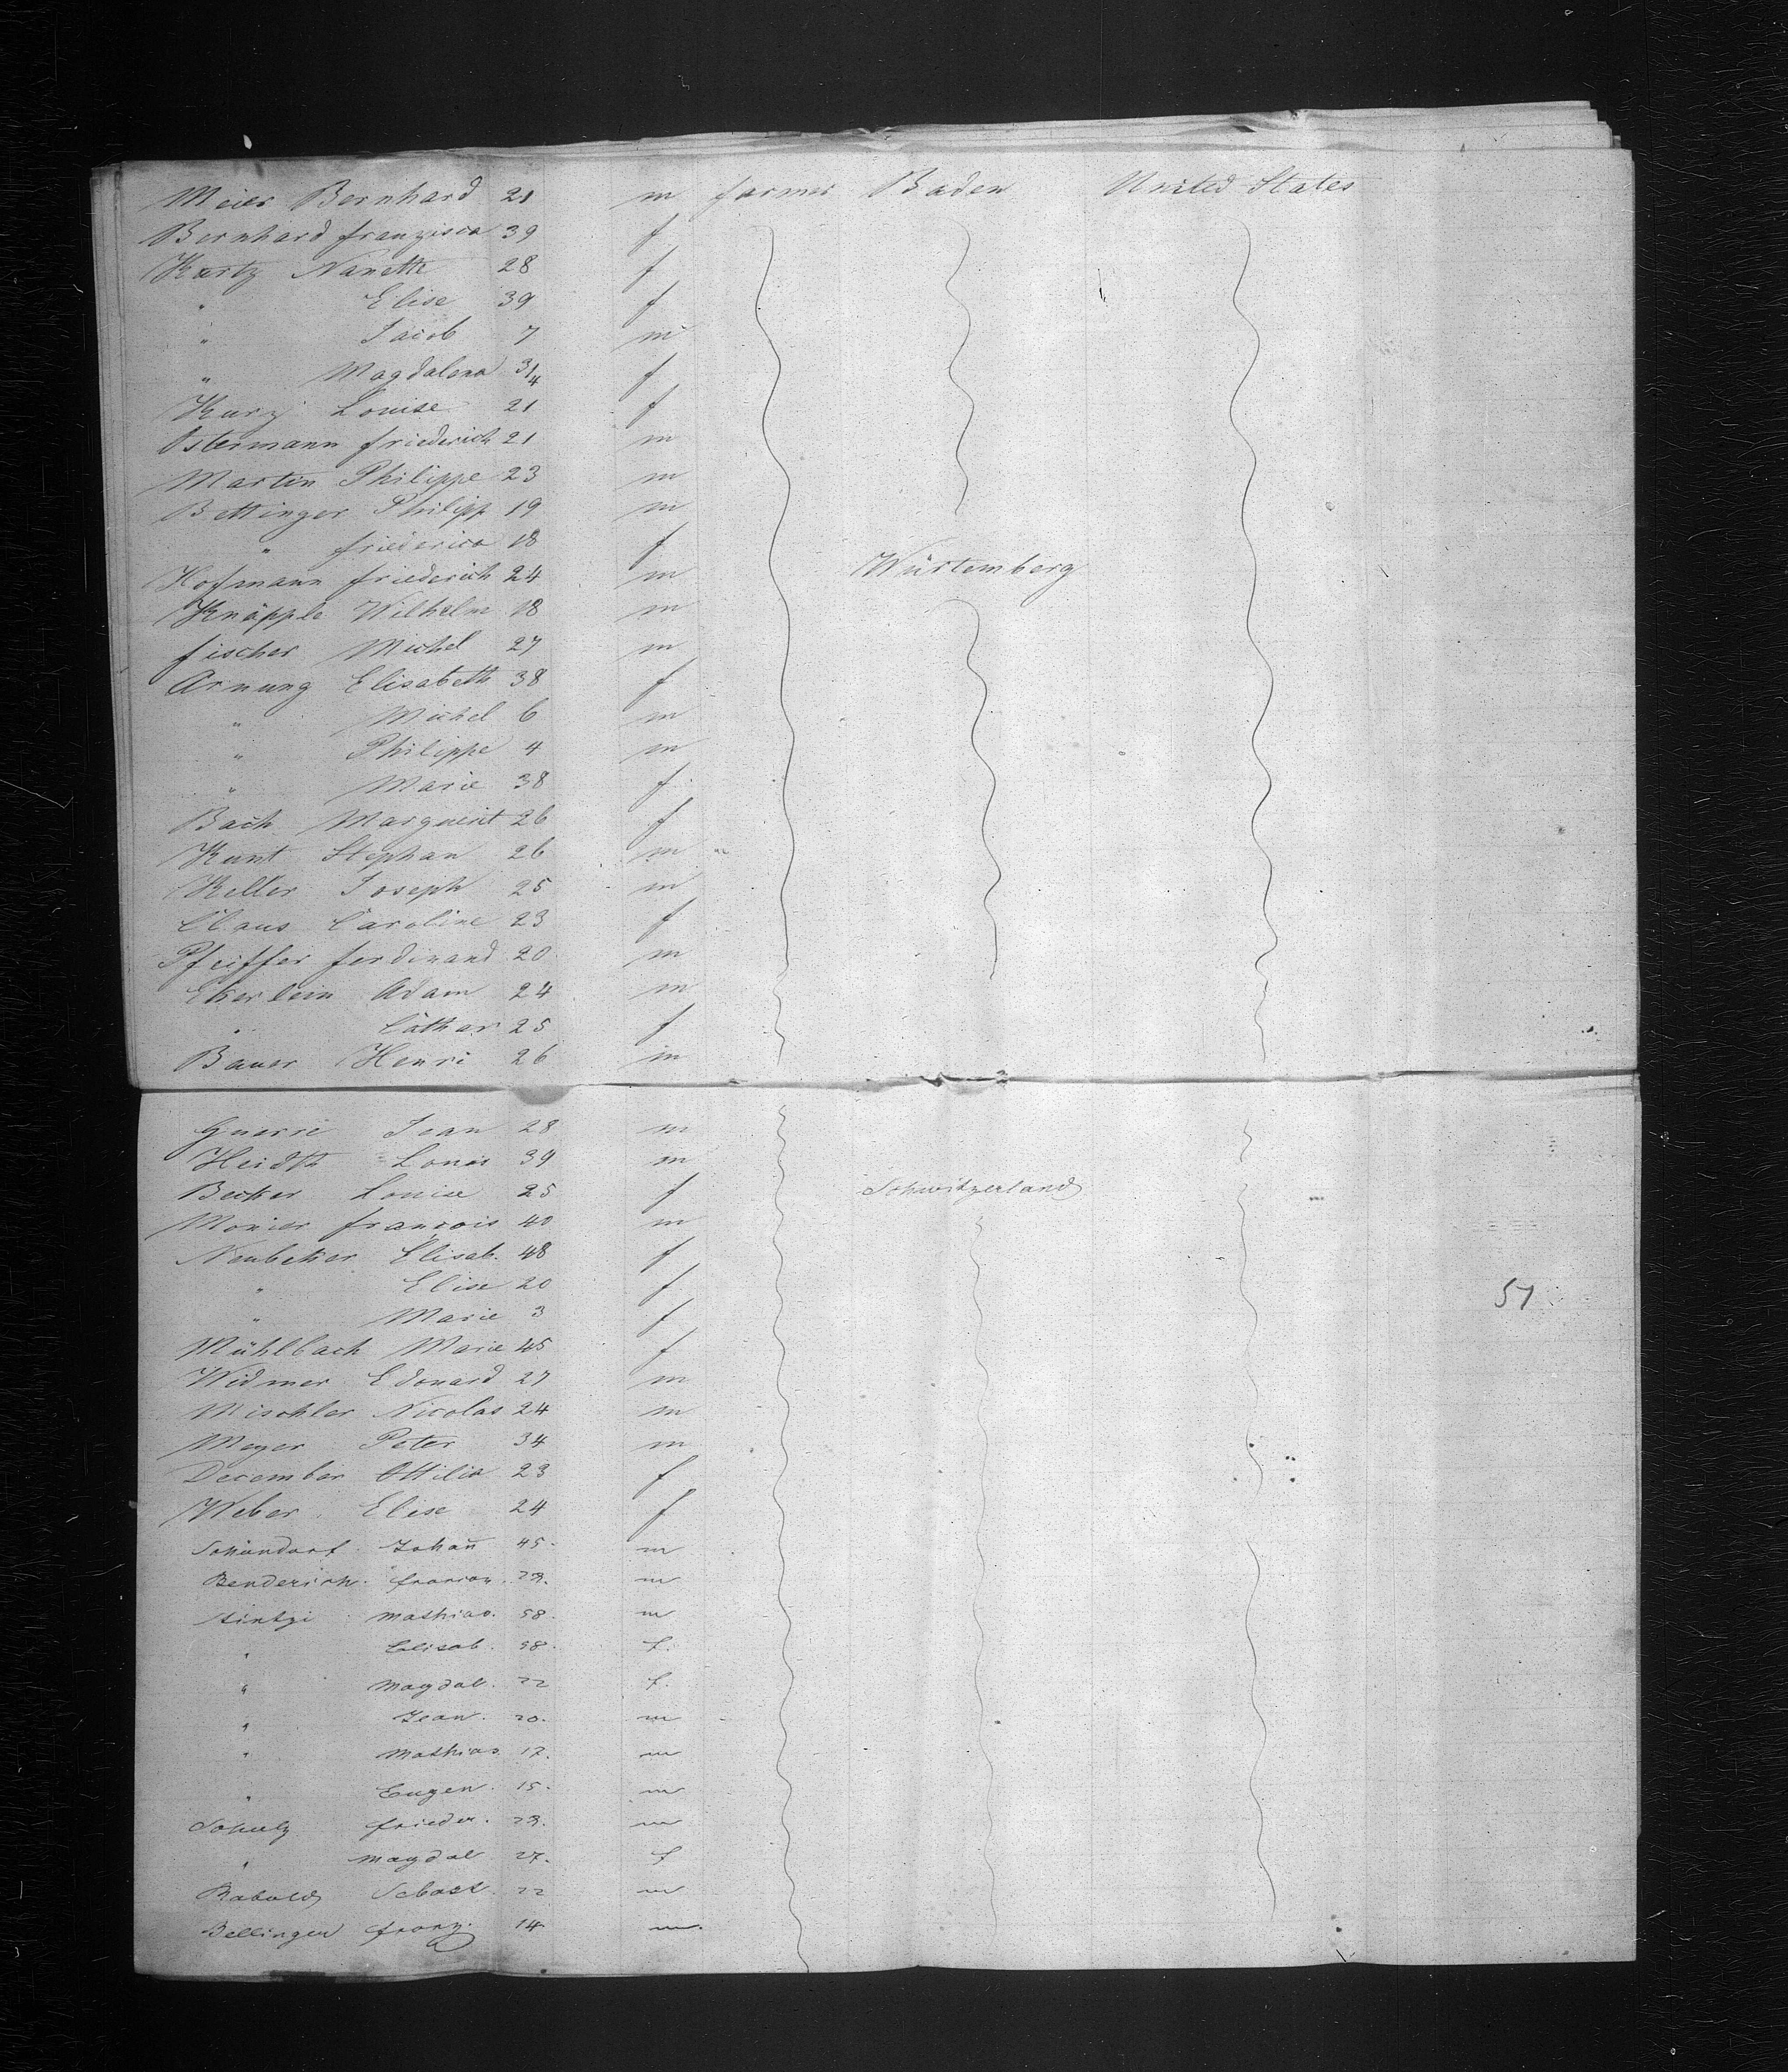 Meier Bernhard 21 m farmer Baden United States
Bernhard franzisca 39 f
Kurtz Nanette 28 f
" Elise 39 f
" Jacob 7 m
" Magdalena 3/4 f
Kurz Louise 21 f
Ostermann friederich 21 m
Martin Philippe 23 m
Bettinger Philipp 19 m
" friederica 18 f
Hofmann friederich 24 m Würtemberg
Knäpple Wilhelm 18 m
fischer Michel 27 m
Arnung Elisabeth 38 f
" Michel 6 m
" Philippe 4 m
" Marie 38 f
Bach Marguerit 26 f
Kunt Stephan 26 m "
Keller Joseph 25 m
Claus Caroline 23 f
Pfeiffer ferdinand 20 m
Ekerlein Adam 24 m
" Cathar 25 f
Bauer Henri 26 m
Guerre Jean 28 m
Heidth Louis 39 m
Becker Louise 25 f Schwitzerland
Monier françois 40 m
Neubeker Elisab. 48 f
" Elise 20 f
" Marie 3 f
57
Mühlbach Marie 45 f
Widmer Edouard 27 m
Mischler Nicolas 24 m
Meyer Peter 34 m
December Ottilia 23 f
Weber Elise 24 f
Schondorf Johan̄ 45 m
Benderich 29. m
Mathias. 58. m
" Elisab. 58. f.
" Magdal. 22 f.
" Jean. 20. m
" Mathias 17. m
" Eugen. 15. m
Schulz frieder. 29. m
" Magdal 27. f
Rabold Sebast. 22 m
Bellinger franz. 14 m.